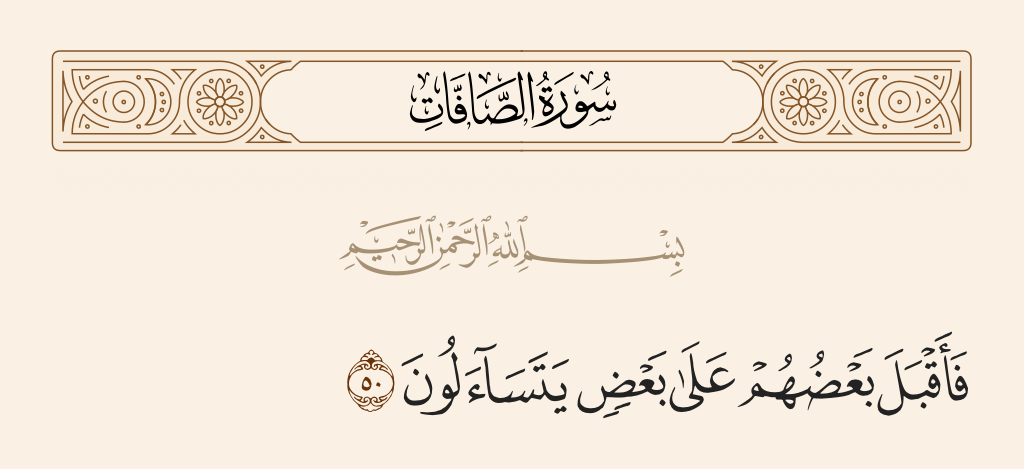 سُورَةُ الصَّافَّاتِ
بِسْمِ ٱللَّهِ ٱلرَّحْمَٰنِ ٱلرَّحِيمِ
فَأَقْبَلَ بَعْضُهُمْ عَلَىٰ بَعْضٍ يَتَسَآءَلُونَ ٥٠